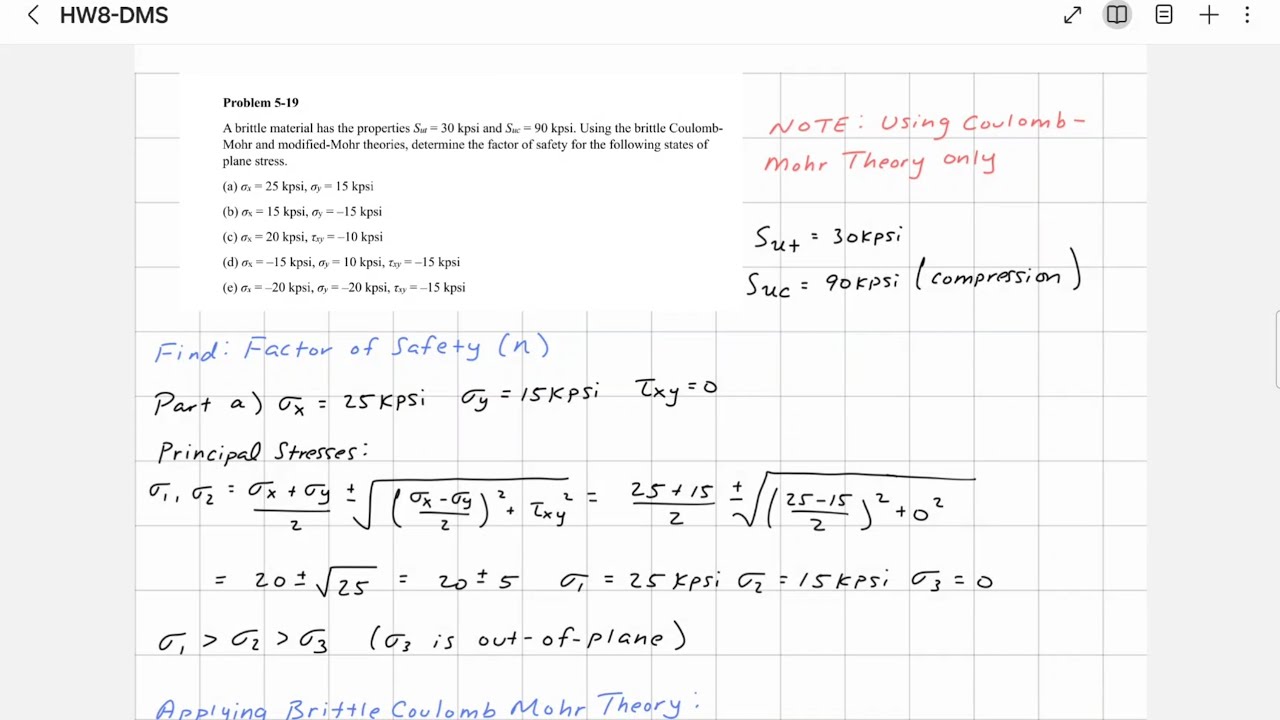 HW8-DMS
Problem 5-19
A brittle material has the properties Sut = 30 kpsi and Suc = 90 kpsi. Using the brittle Coulomb-
Mohr and modified-Mohr theories, determine the factor of safety for the following states of
plane stress.
(a) σx = 25 kpsi, σy = 15 kpsi
(b) σx = 15 kpsi, σy = –15 kpsi
(c) σx = 20 kpsi, τxy = –10 kpsi
(d) σx = –15 kpsi, σy = 10 kpsi, τxy = –15 kpsi
(e) σx = –20 kpsi, σy = –20 kpsi, τxy = –15 kpsi
NOTE: Using Coulomb-
Mohr Theory only
Sut = 30kpsi
Suc = 90kpsi (compression)
Find: Factor of Safety (n)
Part a) σx = 25kpsi σy = 15kpsi τxy = 0
Principal Stresses:
σ1, σ2 = (σx + σy)/2 ± √(((σx - σy)/2)² + τxy²) = (25+15)/2 ± √(((25-15)/2)² + 0²)
= 20 ± √25 = 20 ± 5 σ1 = 25 kpsi σ2 = 15kpsi σ3 = 0
σ1 > σ2 > σ3 (σ3 is out-of-plane)
Applying Brittle Coulomb Mohr Theory: